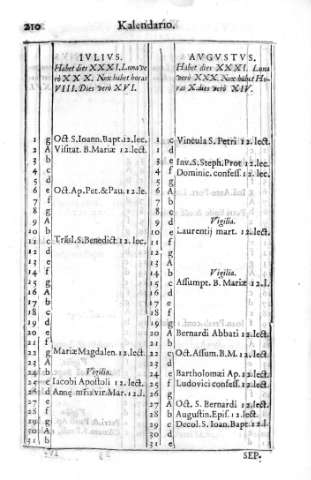 210 Kalendario.
IVLIVS.
Habet dies XXXI. Luna ve
rò XXX. Nox habet horas
VIII. Dies verò XVI.
1 g Oct S. Ioann. Bapt. 12. lec.
2 A Visitat. B. Mariæ 12. lect.
3 b
4 c
5 d
6 e Oct. Ap. Pet. & Pau. 12. le.
7 f
8 g
9 A
10 b
11 c Trãsl. S. Benedict. 12. lec.
12 d
13 e
14 f
15 g
16 A
17 b
18 c
19 d
20 e
21 f
22 g Mariæ Magdalen. 12. lect.
23 A
24 b Vigilia.
25 c Iacobi Apostoli 12. lect.
26 d Annæ matris vir. Mar. 12. l.
27 e
28 f
29 g
30 A
31 b
AVGVSTVS.
Habet dies XXXI. Luna
verò XXX. Nox habet Ho-
ras X. dies verò XIV.
1 c Vincula S. Petri 12. lect.
2 d
3 e Inv. S. Steph. Prot 12. lec.
4 f Dominic. confess. 12. lec.
5 g
6 A
7 b
8 c
9 d Vigilia.
10 e Laurentij mart. 12. lect.
11 f
12 g
13 A
14 b Vigilia.
15 c Assumpt. B. Mariæ 12. l.
16 d
17 e
18 f
19 g
20 A Bernardi Abbati 12. lect.
21 b
22 c Oct. Assum. B. M. 12. lect.
23 d
24 e Bartholomæi Ap. 12. lect.
25 f Ludovici confess. 12. lect.
26 g
27 A Oct. S. Bernardi 12. lect.
28 b Augustin. Epis. 12. lect.
29 c Decol. S. Ioan. Bapt. 12. l.
30 d
31 e
SEP.